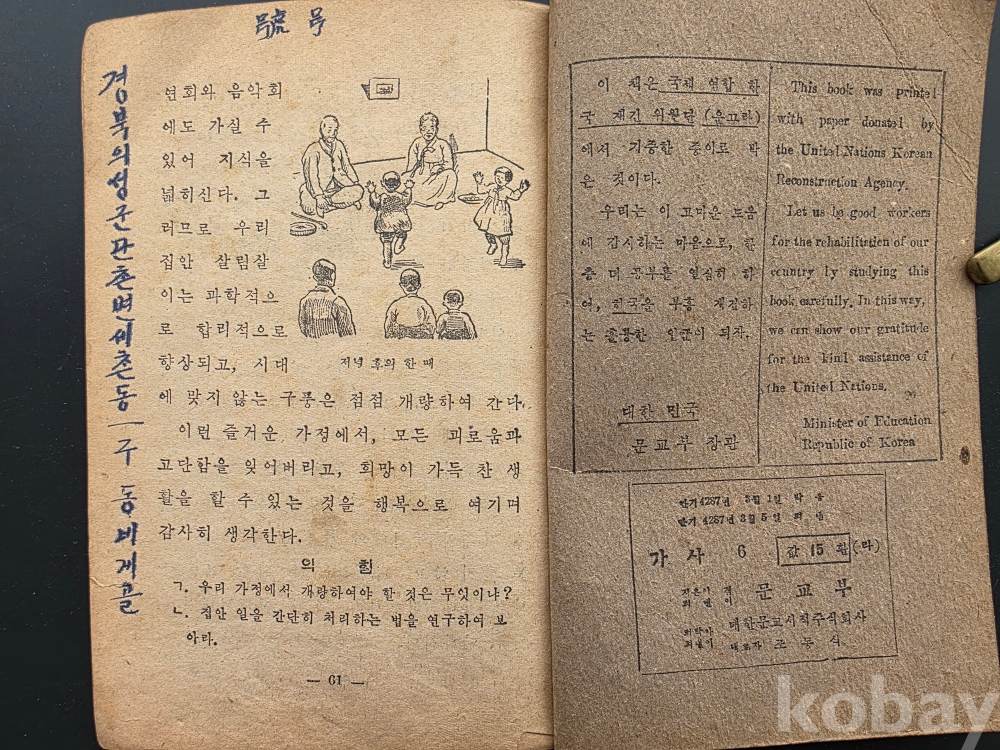 號 号
경북의성군단촌면세촌동一구 동비계골
연회와 음악회
에도 가실 수
있어 지식을
넓히신다. 그
러므로 우리
집안 살림살
이는 과학적으
로 합리적으로
향상되고, 시대
저녁 후의 한 때
에 맞지 않는 구풍은 점점 개량하여 간다.
이런 즐거운 가정에서, 모든 괴로움과
고단함을 잊어버리고, 희망이 가득 찬 생
활을 할 수 있는 것을 행복으로 여기며
감사히 생각한다.
익 힘
ㄱ. 우리 가정에서 개량하여야 할 것은 무엇이냐?
ㄴ. 집안 일을 간단히 처리하는 법을 연구하여 보
아라.
— 61 —
이 책은 국제 연합 한
국 재건 위원단 (운끄라)
에서 기증한 종이로 박
은 것이다.
우리는 이 고마운 도움
에 감사하는 마음으로, 한
층 더 공부를 열심히 하
여, 한국을 부흥 재건하
는 훌륭한 일꾼이 되자.
대한 민국
문교부 장관
This book was printed
with paper donated by
the United Nations Korean
Reconstruction Agency.
Let us be good workers
for the rehabilitation of our
country by studying this
book carefully. In this way,
we can show our gratitude
for the kind assistance of
the United Nations.
Minister of Education
Republic of Korea
단기 4287년 3월 1일 박음
단기 4287년 3월 5일 펴냄
가사 6 값 15 환 (라)
지은이 겸 펴낸이 문교부
대한문교서적주식회사
대표자 조동식
kobay